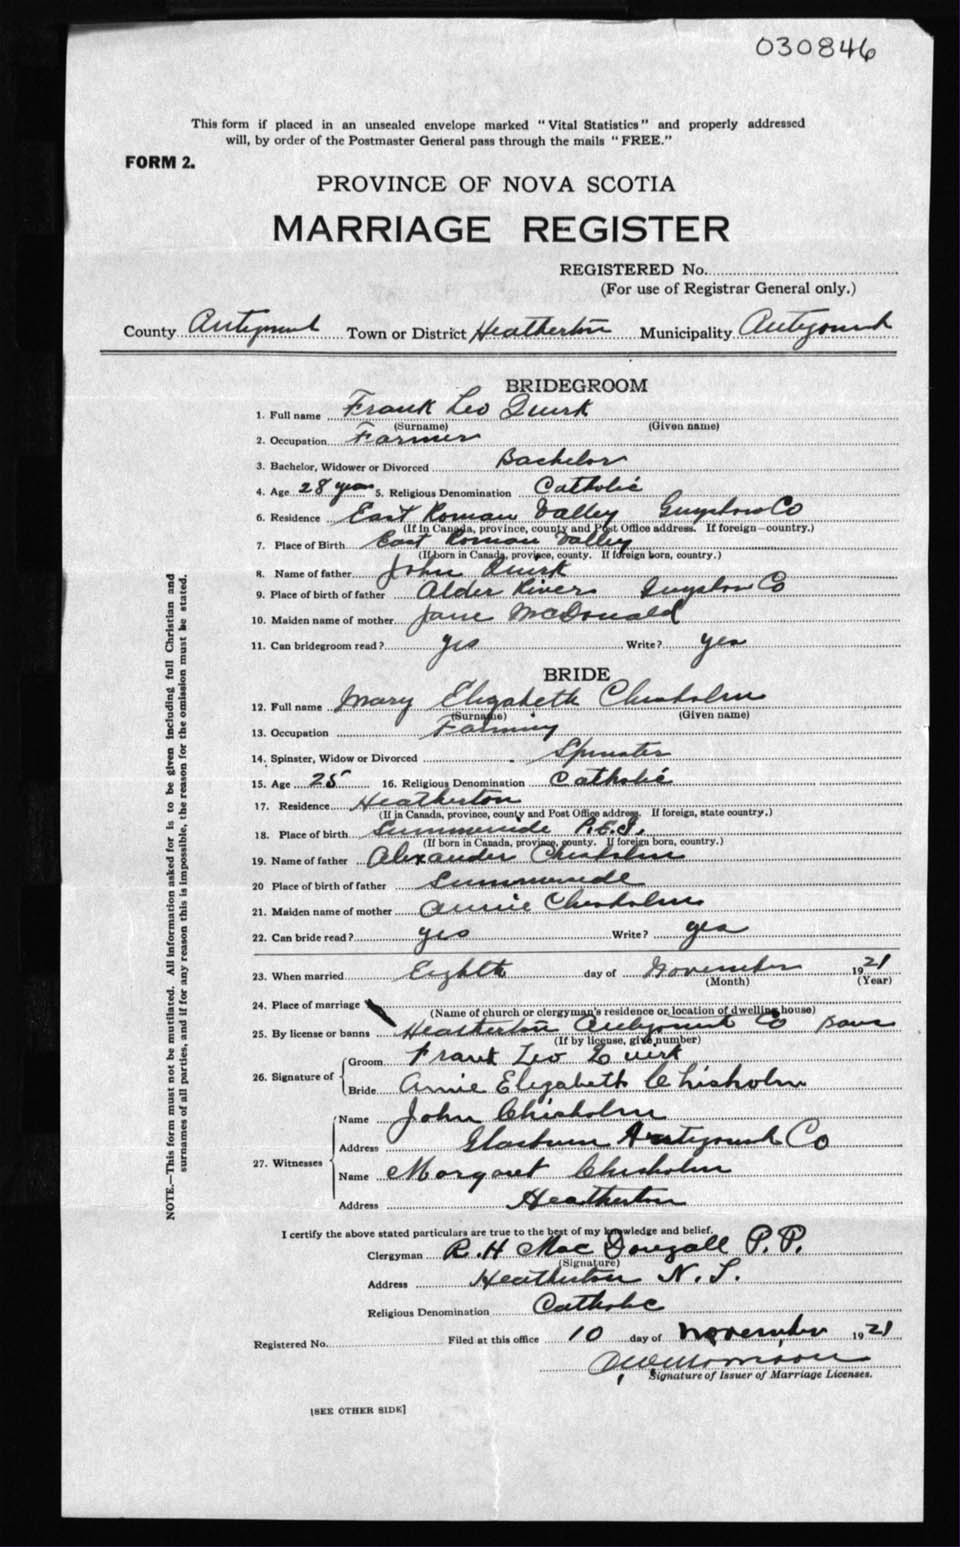 030846
This form if placed in an unsealed envelope marked "Vital Statistics" and properly addressed
will, by order of the Postmaster General pass through the mails "FREE."
FORM 2.
PROVINCE OF NOVA SCOTIA
MARRIAGE REGISTER
REGISTERED No.
(For use of Registrar General only.)
County Antigonish Town or District Heatherton Municipality Antigonish
BRIDEGROOM
1. Full name Frank Leo Quirk
(Surname) (Given name)
2. Occupation Farmer
3. Bachelor, Widower or Divorced Bachelor
4. Age 28 years 5. Religious Denomination Catholic
6. Residence East Roman Valley Guysboro Co
(If in Canada, province, county and Post Office address. If foreign—country.)
7. Place of Birth East Roman Valley
(If born in Canada, province, county. If foreign born, country.)
8. Name of father John Quirk
9. Place of birth of father Alder River Guysboro Co
10. Maiden name of mother Jane McDonald
11. Can bridegroom read? yes Write? yes
BRIDE
12. Full name Mary Elizabeth Chisholm
(Surname) (Given name)
13. Occupation Farming
14. Spinster, Widow or Divorced Spinster
15. Age 25 16. Religious Denomination Catholic
17. Residence Heatherton
(If in Canada, province, county and Post Office address. If foreign, state country.)
18. Place of birth Summerside P.E.I.
(If born in Canada, province, county. If foreign born, country.)
19. Name of father Alexander Chisholm
20 Place of birth of father Summerside
21. Maiden name of mother Annie Chisholm
22. Can bride read? yes Write? yes
23. When married Eighth day of November 1921
(Month) (Year)
24. Place of marriage
(Name of church or clergyman's residence or location of dwelling house)
25. By license or banns Heatherton Antigonish Co Banns
(If by license, give number)
26. Signature of Groom Frank Leo Quirk
Bride Annie Elizabeth Chisholm
27. Witnesses Name John Chisholm
Address Glasburn Antigonish Co
Name Margaret Chisholm
Address Heatherton
I certify the above stated particulars are true to the best of my knowledge and belief.
Clergyman R. H MacDougall P.P.
(Signature)
Address Heatherton N.S.
Religious Denomination Catholic
Registered No. Filed at this office 10 day of November 1921
Morrison
Signature of Issuer of Marriage Licenses.
[SEE OTHER SIDE]
NOTE.—This form must not be mutilated. All information asked for is to be given including full Christian and
surnames of all parties, and if for any reason this is impossible, the reason for the omission must be stated.